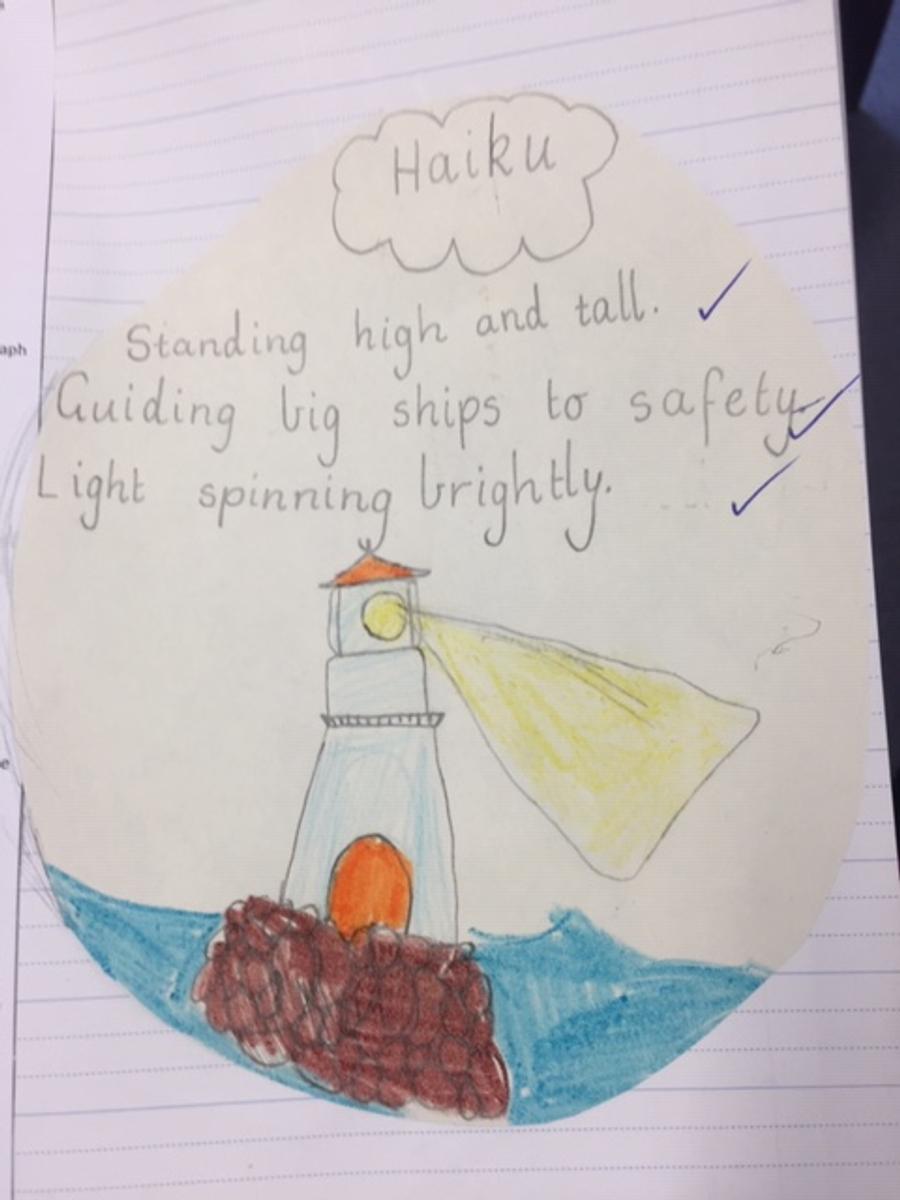 Haiku
Standing high and tall.
Guiding big ships to safety.
Light spinning brightly.
aph
e